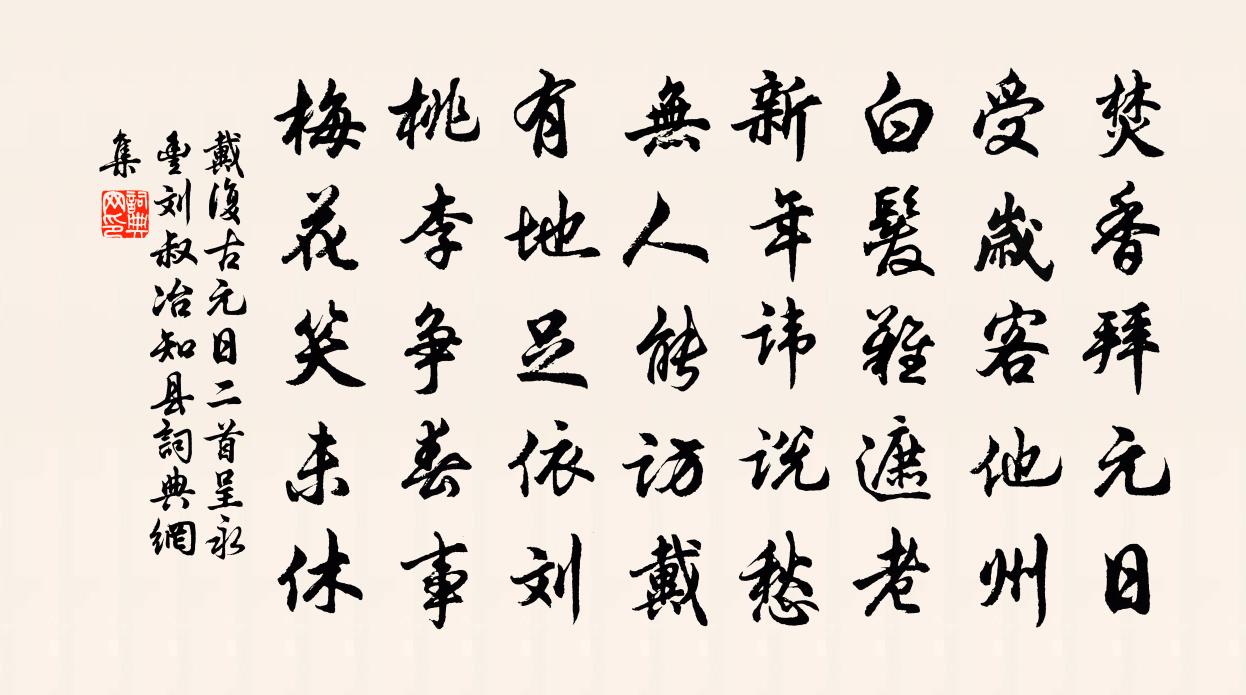 焚香拜元日
受歲客他州
白髮難遮老
新年讳説愁
無人能訪戴
有地足依刘
桃李争春事
梅花笑未休
戴復古元日二首呈永
豊刘叔冶知县詞典網
集
詞典网印